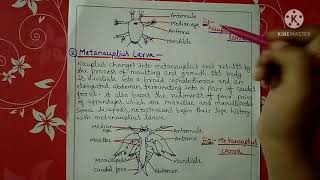 Antennule
Median eye
Antenna
Mandible
Fig:- Nauplius
Larva
KINEMASTER
② Metanauplius Larva:-
Nauplius changes into metanauplius and results by
the process of moulting and growth. Its body
is divisible into a broad cephalothorax and an
elongated abdomen, terminating into a pair of caudal
forks. It also bears the rudiments of four pairs
of appendages, which are maxillae and maxillipedes.
Some decapods, begin their life history
with metanauplius larva.
Median
eye
Antennule
Antenna
Maxillae
Mandible
Maxillipedes
Caudal fork
Abdomen
Fig:- Metanauplius
Larva